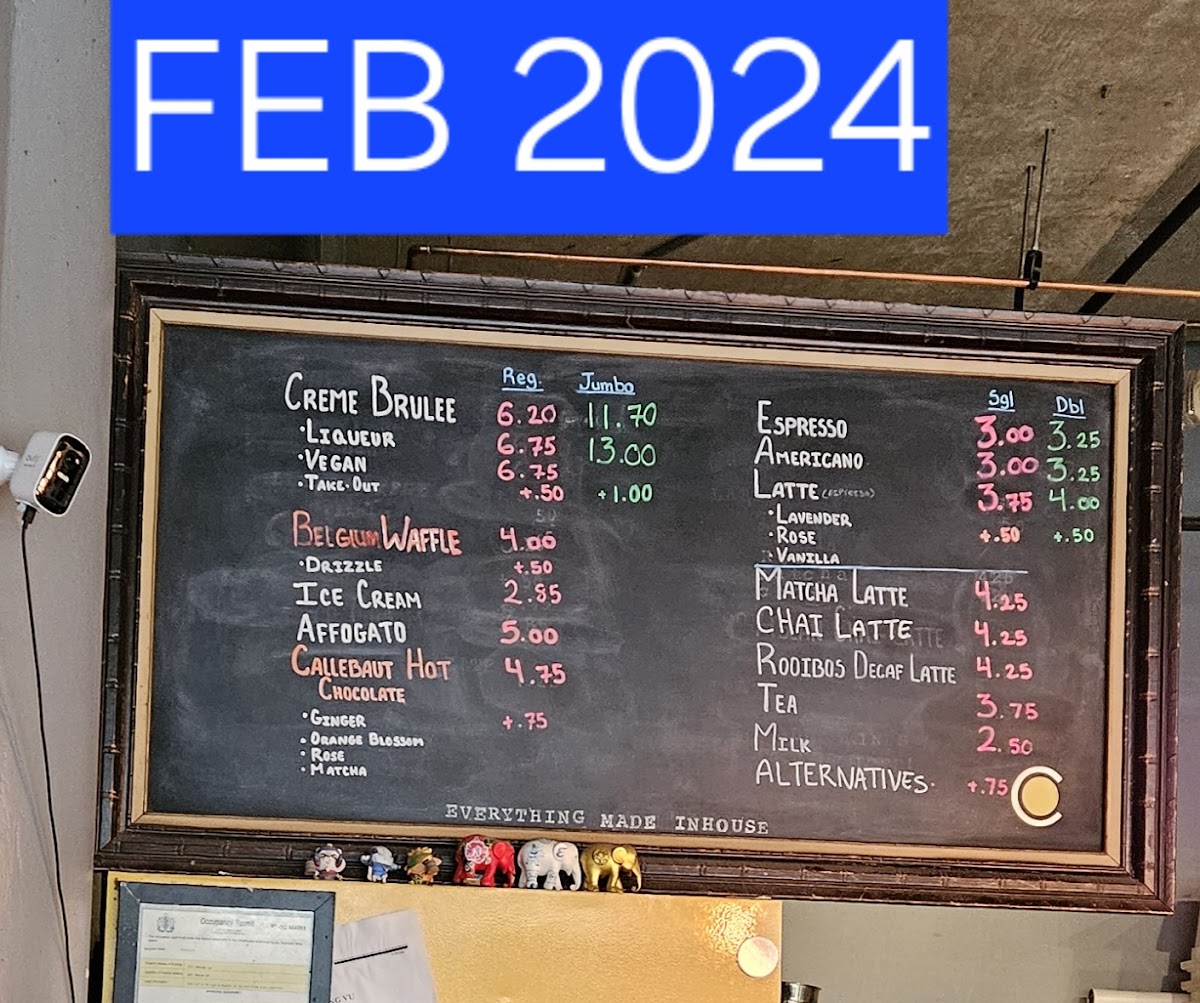 FEB 2024
Reg. Jumbo
CREME BRULEE 6.20 11.70
·LIQUEUR 6.75 13.00
·VEGAN 6.75
·TAKE-OUT +.50 +1.00
BELGIUM WAFFLE 4.00
·DRIZZLE +.50
ICE CREAM 2.85
AFFOGATO 5.00
CALLEBAUT HOT 4.75
CHOCOLATE
·GINGER +.75
·ORANGE BLOSSOM
·ROSE
·MATCHA
Sgl Dbl
ESPRESSO 3.00 3.25
AMERICANO 3.00 3.25
LATTE (ESPRESSO) 3.75 4.00
·LAVENDER
·ROSE +.50 +.50
·VANILLA
MATCHA LATTE 4.25
CHAI LATTE 4.25
ROOIBOS DECAF LATTE 4.25
TEA 3.75
MILK 2.50
ALTERNATIVES· +.75
EVERYTHING MADE INHOUSE
Occupancy Permit